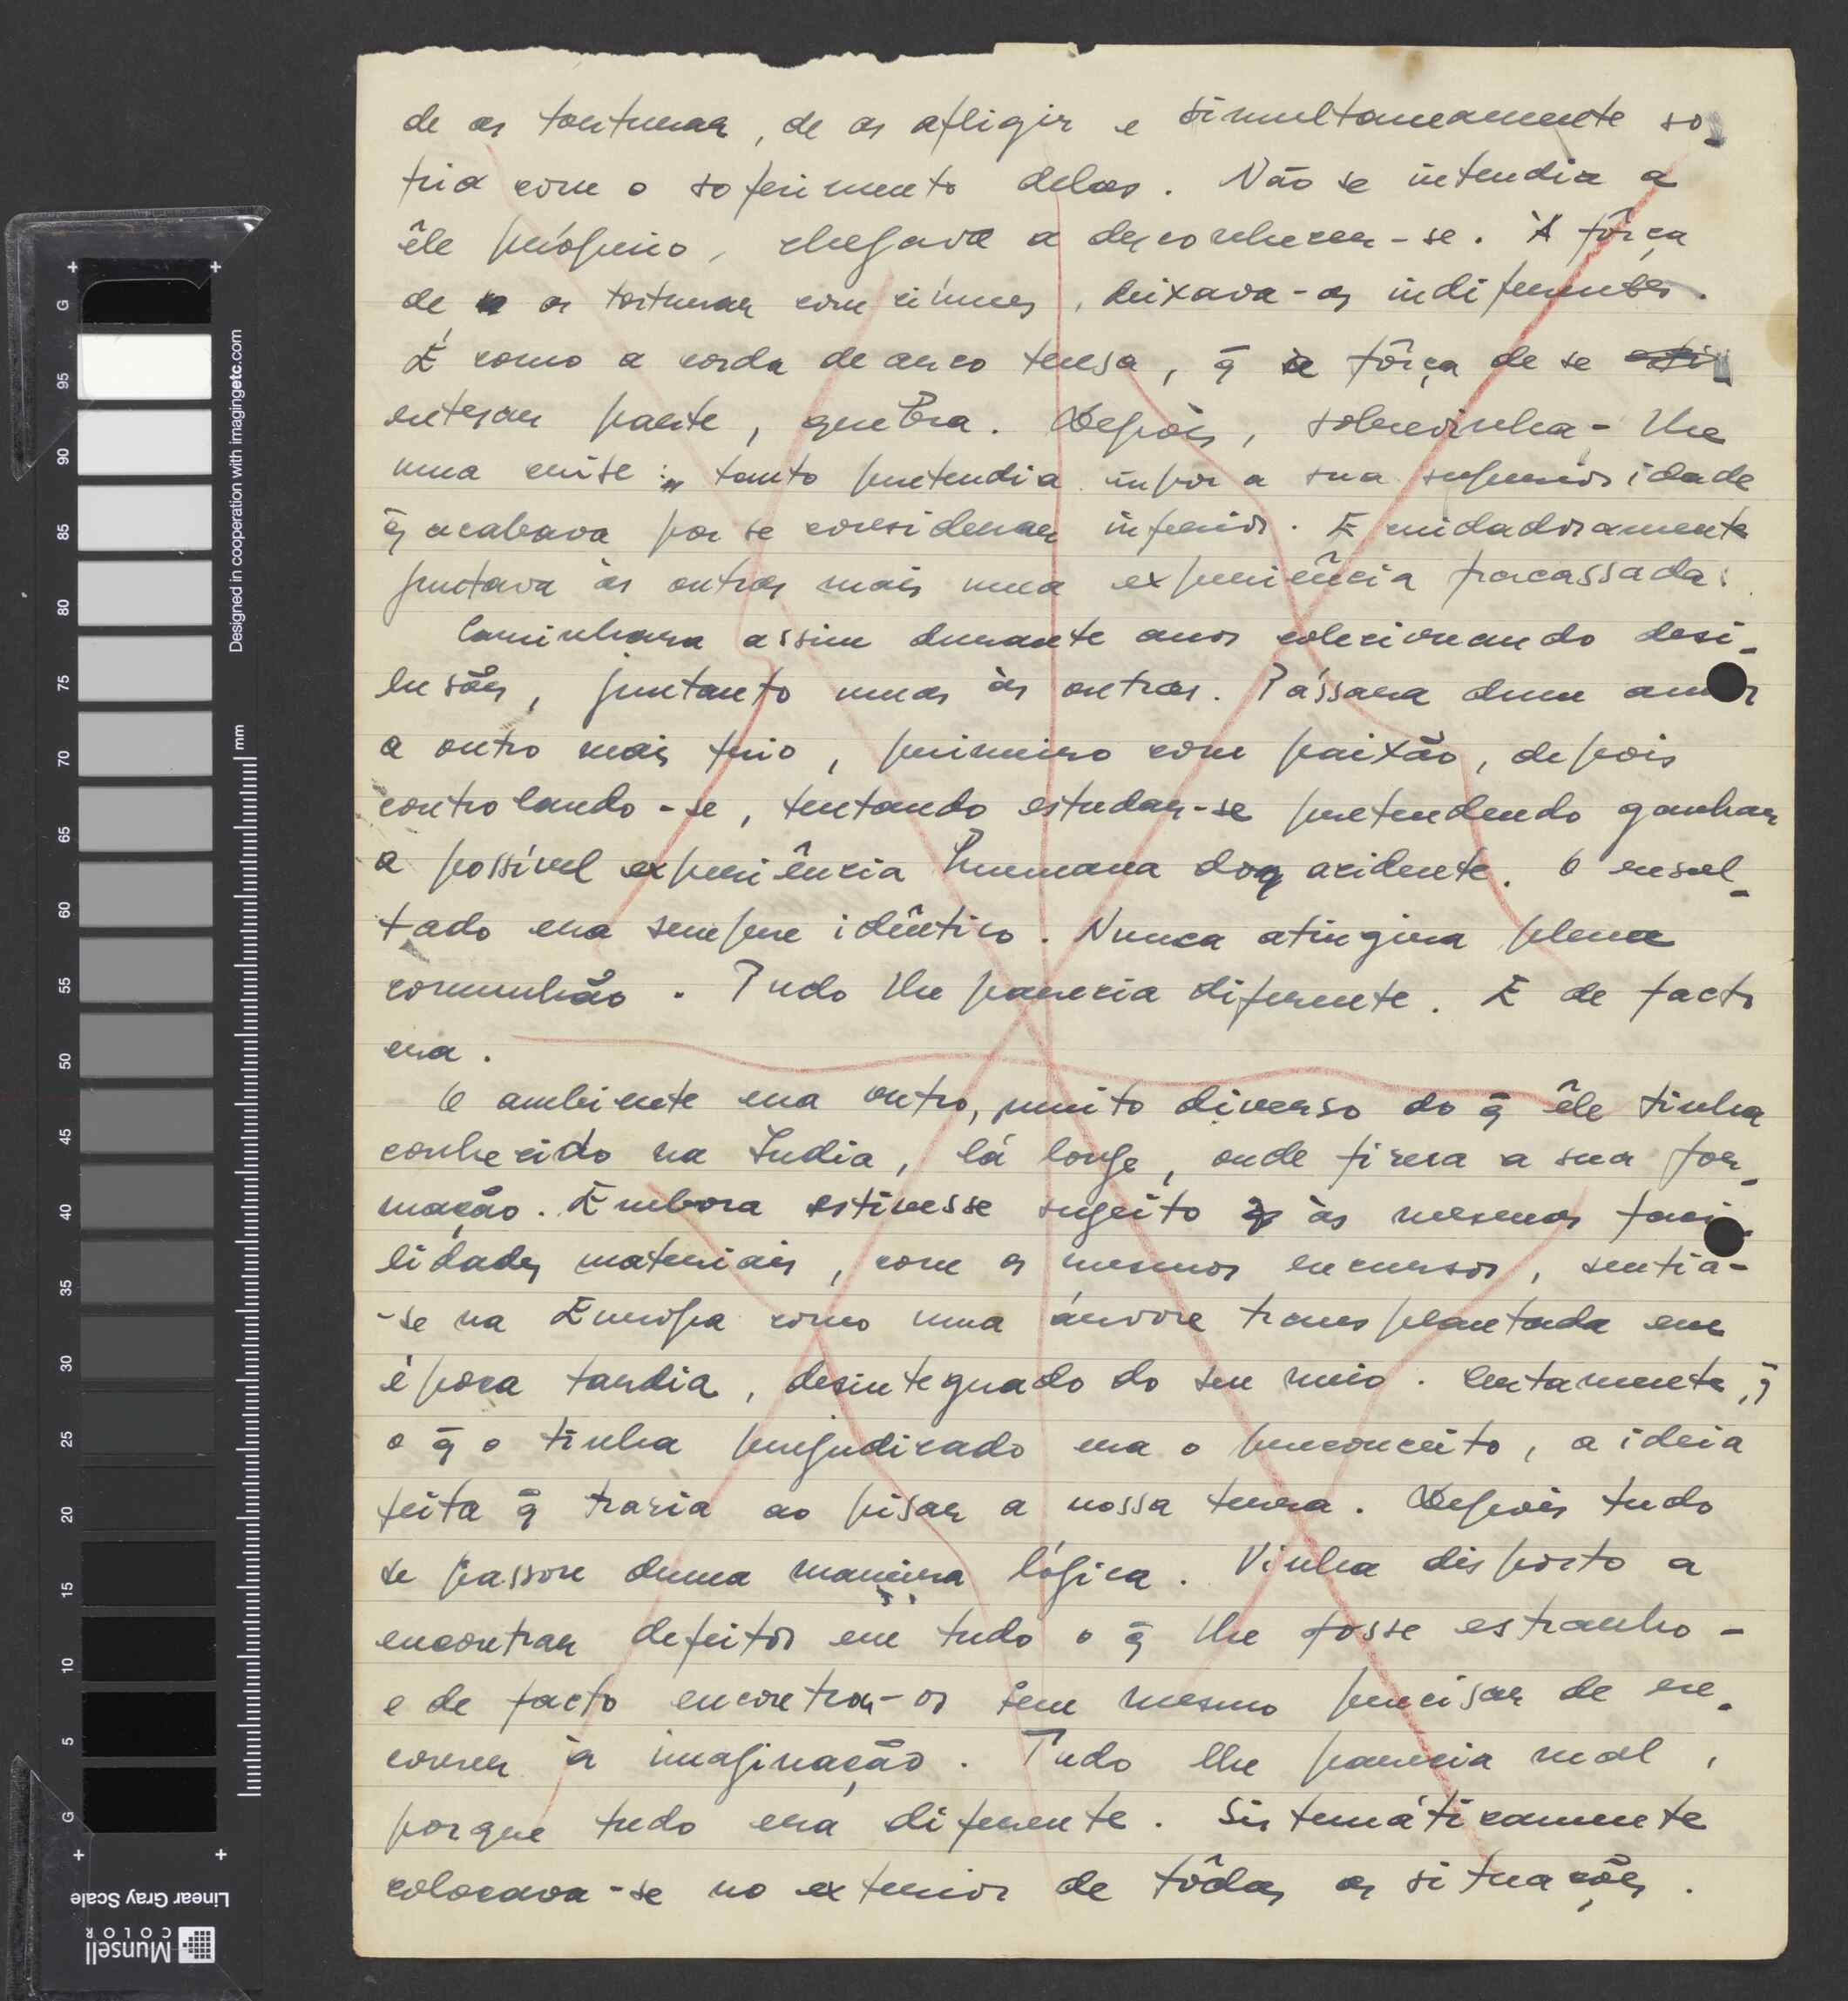 de as torturar, de as afligir e simultaneamente so-
fria com o sofrimento delas. Não se intendia a
êle próprio, chegava a desconhecer-se. À fôrça
de as torturar com ciúmes, deixava-as indiferentes.
É como a corda de arco tensa, q̃ à fôrça de se
entesar parte, quebra. Depois, sobrevinha-lhe
uma crise: tanto pretendia impor a sua superioridade
q̃ acabava por se considerar inferior. E cuidadosamente
juntava às outras mais uma experiência fracassada.
Caminhara assim durante anos colecionando desi-
lusões, juntanto umas às outras. Pássara dum amor
a outro mais frio, primeiro com paixão, depois
controlando-se, tentando estudar-se pretendendo ganhar
a possível experiência humana do acidente. O resul-
tado era sempre idêntico. Nunca atingira plena
comunhão. Tudo lhe parecia diferente. E de facto
era.
O ambiente era outro, muito diverso do q̃ êle tinha
conhecido na India, lá longe, onde fizera a sua for-
mação. Embora estivesse sugeito às mesmas faci-
lidades materiais, com os mesmos recursos, sentia-
-se na Europa como uma árvore transplantada em
época tardia, desintegrado do seu meio. Certamente, q̃
o q̃ o tinha prejudicado era o preconceito, a ideia
feita q̃ trazia ao pisar a nossa terra. Depois tudo
se passou duma maneira lógica. Vinha disposto a
encontrar defeitos em tudo o q̃ lhe fosse estranho -
e de facto encontrou-os sem mesmo precisar de re-
correr à imaginação. Tudo lhe parecia mal,
porque tudo era diferente. Sistemáticamente
colocava-se no exterior de tôdas as situações.
Designed in cooperation with imagingetc.com
mm
G
95
90
85
80
75
70
65
60
55
50
45
40
35
30
25
20
15
10
5
G
Linear Gray Scale
Munsell
COLOR